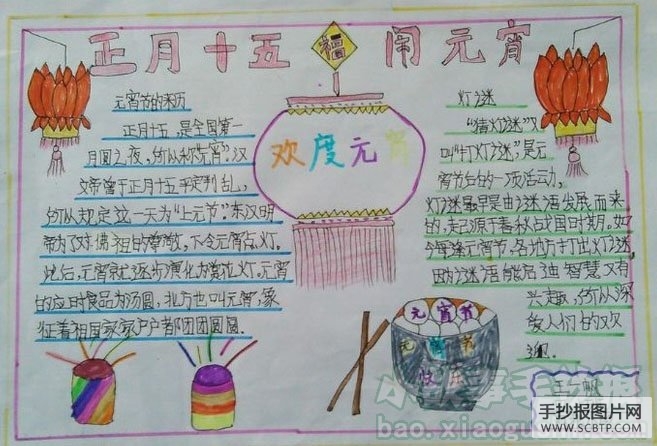 正月十五 闹元宵
福
元宵节的来历
正月十五,是全国第一
月圆之夜,所以称"元宵",汉
文帝曾于正月十五平定判乱,
所以规定这一天为"上元节",东汉明
帝为对佛祖的尊敬,下令元宵点灯。
此后,元宵就逐步演化为赏花灯。元宵
的应时食品为汤圆,北方也叫元宵,象
征着祖国家家户户都团团圆圆
欢度元宵
灯谜
"猜灯谜"又
叫"打灯谜",是元
宵节后的一项活动,
灯谜最早是由谜语发展而来
的,起源于春秋战国时期。如
今每逢元宵节,各地方打出灯谜,
因为谜语能启迪智慧又有
兴趣,所以深
受人们的欢
迎。
元宵节
元宵节
快乐
王一帆
手抄报图片网
WWW.SCBTP.COM
bao.xiaogu